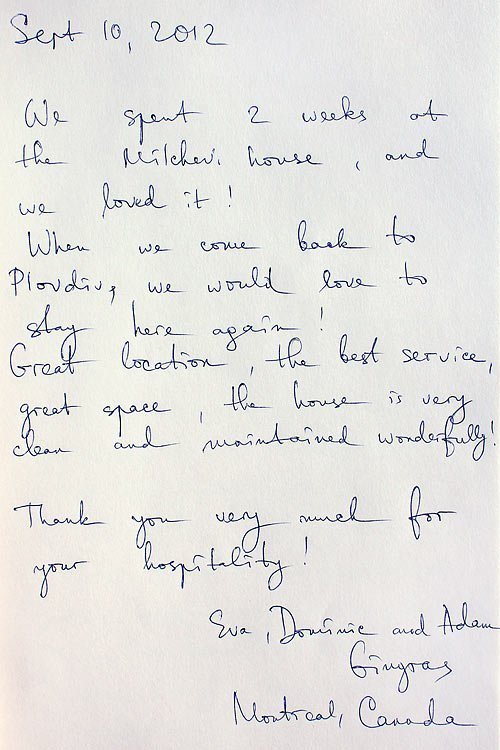 Sept 10, 2012
We spent 2 weeks at
the Milchevi house, and
we loved it!
When we come back to
Plovdiv, we would love to
stay here again!
Great location, the best service,
great space, the house is very
clean and maintained wonderfully!
Thank you very much for
your hospitality!
Eva, Dominic and Adam
Gingras
Montreal, Canada